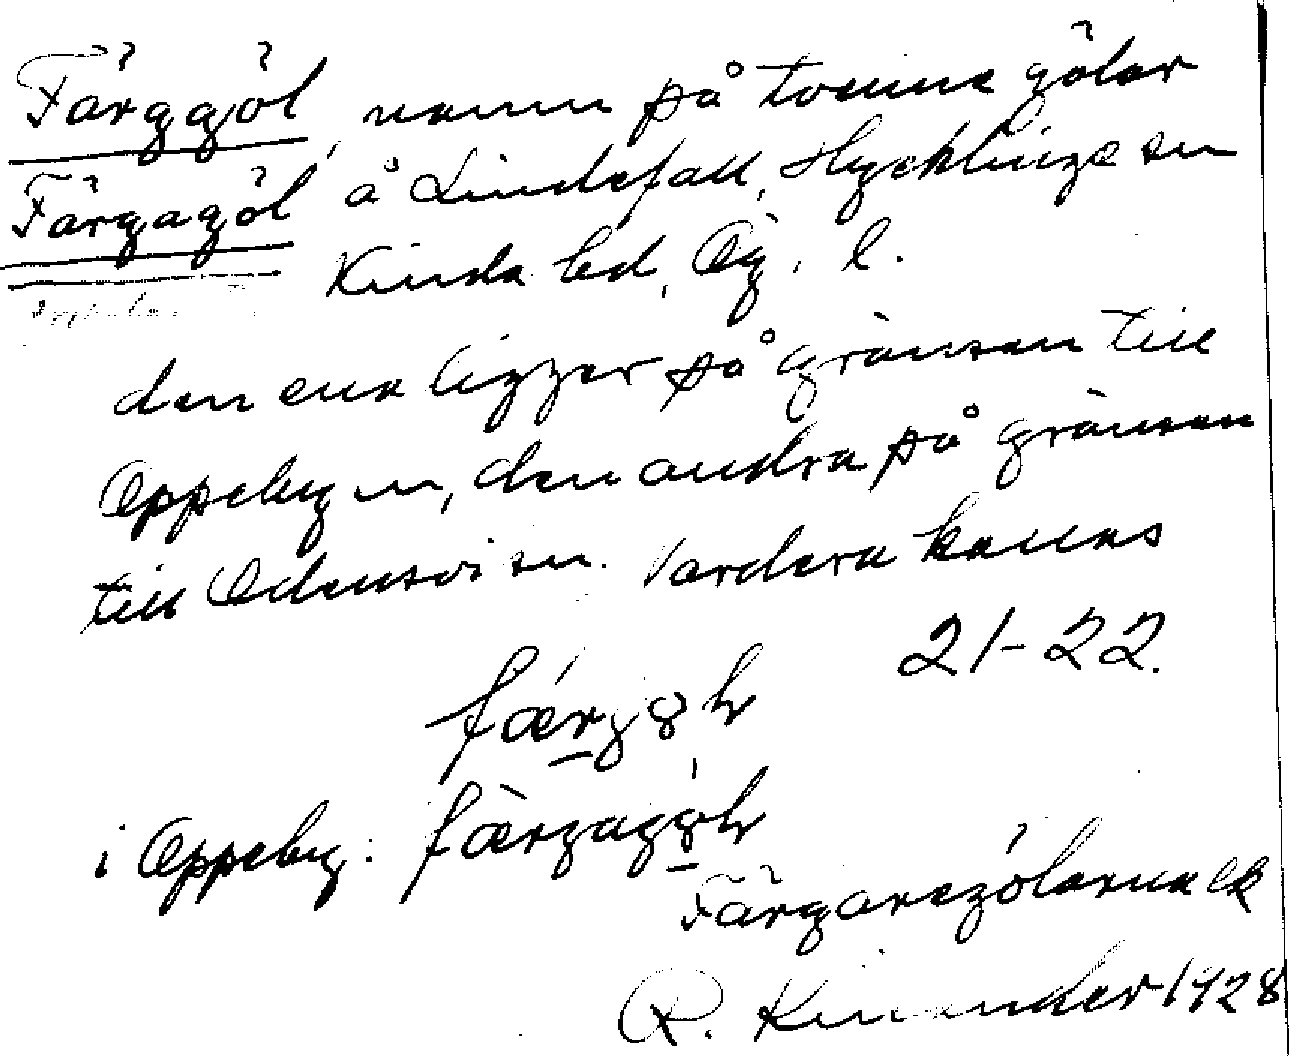 Färggöl, namn på tvenne gölar
Färgagöl å Lindefall, Hycklinge sn
Kinda hd, Ög. l.
den ena ligger på gränsen till
Oppeby sn, den andra på gränsen
till Odensvi sn. Vardera kallas
21-22.
færgøḷ
i Oppeby: færgagøḷ
Färgaregölarna ek
R. Kinander 1928